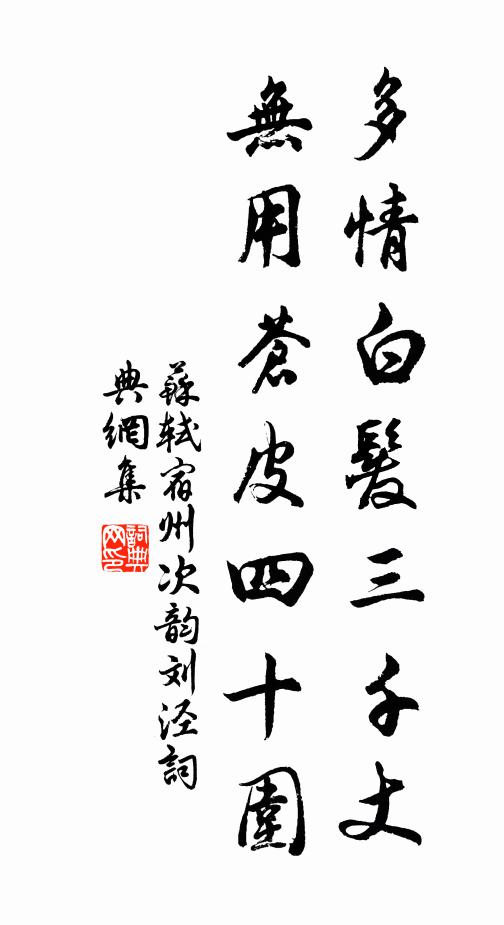 多情白髮三千丈
無用蒼皮四十圍
蘇軾宿州次韵刘涇詞
典網集
詞典網印